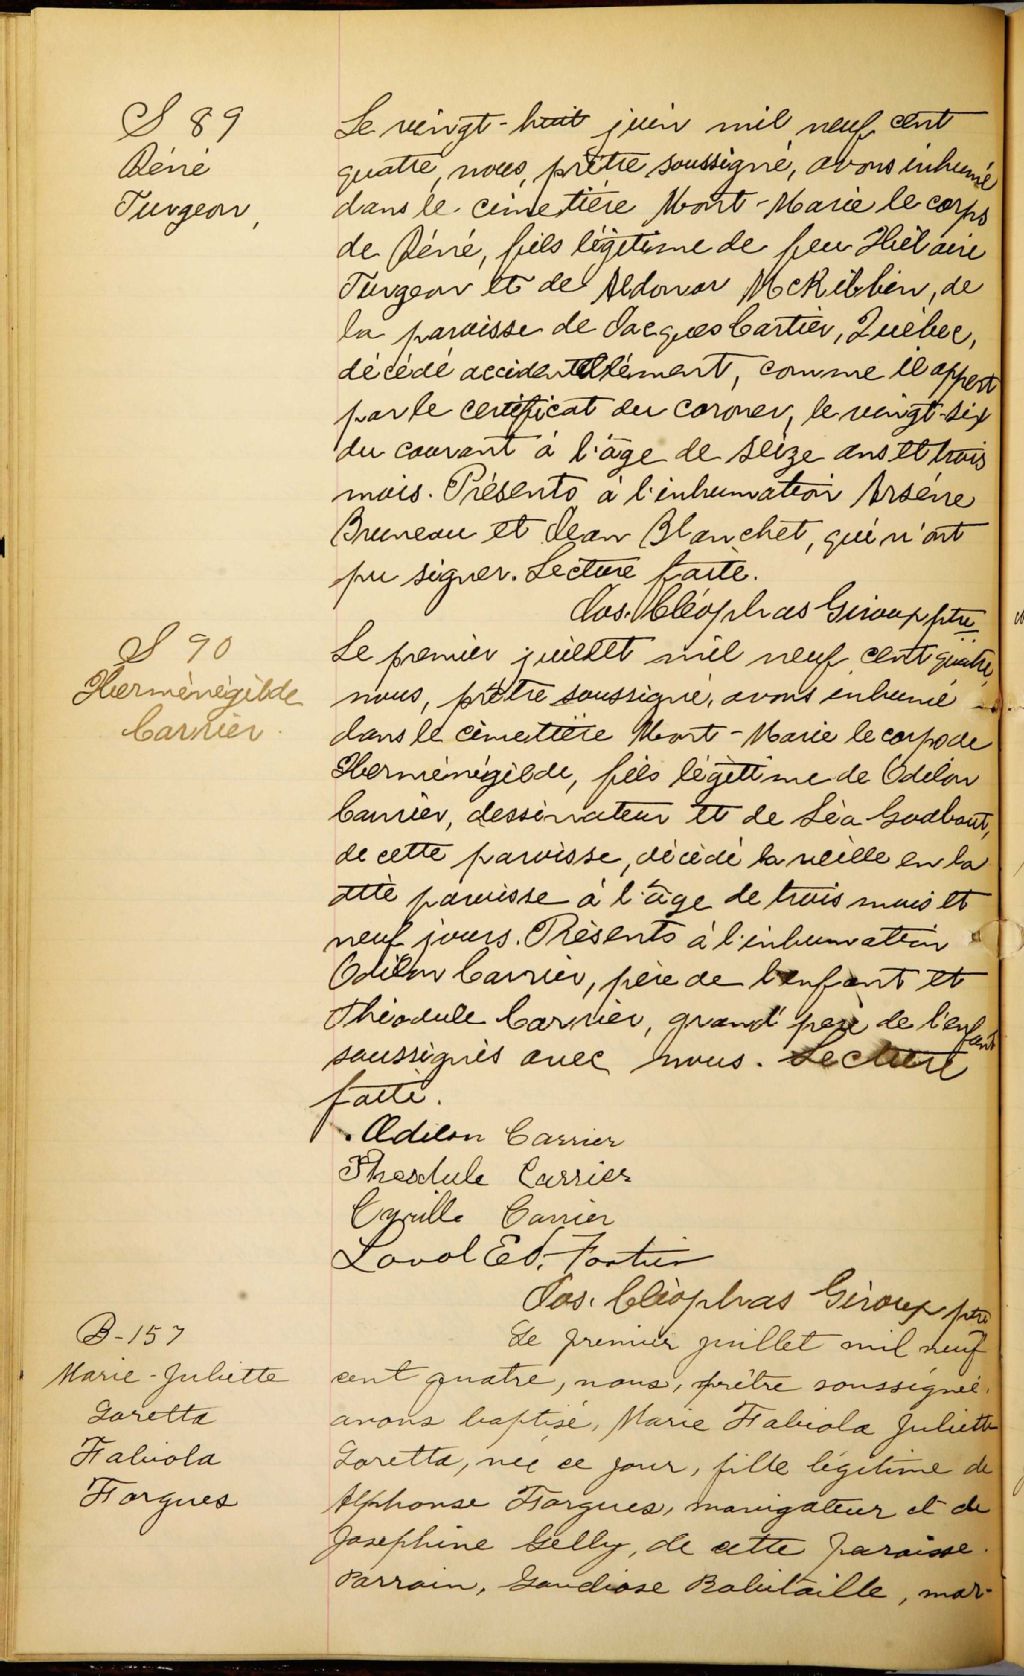 S 89
Réné
Turgeon,
Le vingt-huit juin mil neuf cent
quatre, nous, prêtre soussigné, avons inhumé
dans le cimetière Mont-Marie le corps
de Réné, fils légitime de feu Hilaire
Turgeon et de Aldonar McKibbin, de
la paroisse de Jacques Cartier, Québec,
décédé accidentellement, comme il appert
par le certificat du coroner, le vingt-six
du courant à l'âge de seize ans et trois
mois. Présents à l'inhumation Arsène
Bruneau et Jean Blanchet, qui n'ont
pu signer. Lecture faite.
Jos. Cléophas Giroux ptre
S 90
Herménégilde
Carrier.
Le premier juillet mil neuf cent quatre,
nous, prêtre soussigné, avons inhumé
dans le cimetière Mont-Marie le corps de
Herménégilde, fils légitime de Odilon
Carrier, dessinateur et de Léa Godbout,
de cette paroisse, décédé la veille en la
dite paroisse à l'âge de trois mois et
neuf jours. Présents à l'inhumation
Odilon Carrier, père de l'enfant et
Théodule Carrier, grand'père de l'enfant
soussignés avec nous. Lecture
faite.
Odilon Carrier
Theodule Carrier
Cyrille Carrier
Laval Ed. Fortier
Jos. Cléophas Giroux ptre
B-157
Marie-Juliette
Loretta
Fabiola
Fargues
Le premier juillet mil neuf
cent quatre, nous, prêtre soussigné,
avons baptisé, Marie Fabiola Juliette
Loretta, née ce jour, fille légitime de
Alphonse Fargues, navigateur et de
Josephine Gelly, de cette paroisse.
Parrain, Gaudiose Robitaille, mar-